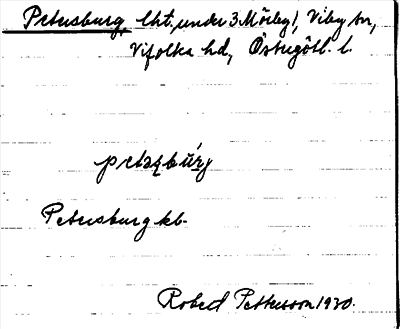 Petersburg, lht. under 3 Mörby!, Viby sn,
Vifolka hd, Östergötl. l.
petsbúrg
Petersburg kb.
Robert Pettersson 1930.